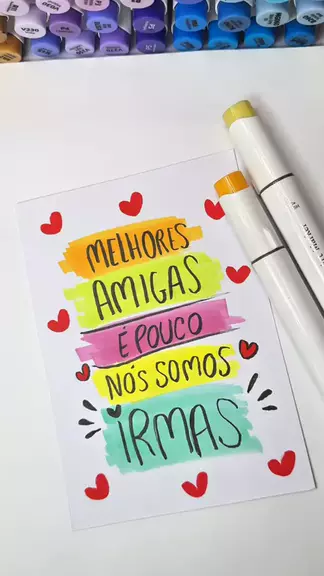 MELHORES
AMIGAS
É POUCO
NÓS SOMOS
IRMAS